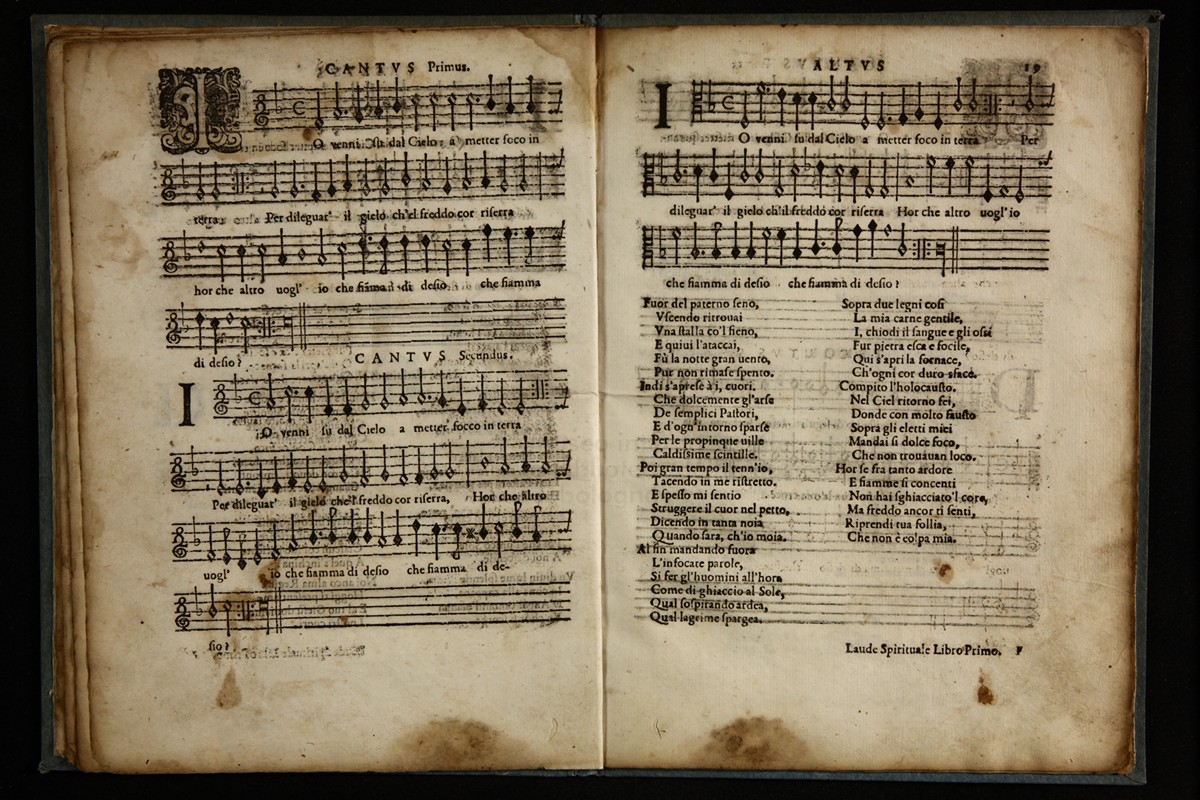 CANTVS Primus.
IO venni su dal Cielo a metter foco in
terra Per dileguar' il gielo ch'el freddo cor riserra
hor che altro uogl' io che fiamma di desio che fiamma
di desio?
CANTVS Secundus.
IO venni su dal Cielo a metter focco in terra
Per dileguar' il gielo che'l freddo cor riserra, Hor che altro
uogl' io che fiamma di desio che fiamma di de-
sio?
ALTVS 19
IO venni su dal Cielo a metter foco in terra Per
dileguar' il gielo ch'il freddo cor riserra Hor che altro uogl' io
che fiamma di desio che fiamma di desio?
Fuor del paterno seno,
Vscendo ritrouai
Vna stalla co'l fieno,
E quiui l'attaccai,
Fù la notte gran uento,
Pur non rimase spento.
Indi s'aprese à i, cuori.
Che dolcemente gl'arse
De semplici Pastori,
E d'ogn'intorno sparse
Per le propinque uille
Caldissime scintille.
Poi gran tempo il tenn'io,
Tacendo in me ristretto.
E spesso mi sentio
Struggere il cuor nel petto,
Dicendo in tanta noia
Quando sara, ch'io moia.
Al fin mandando fuora
L'infocate parole,
Si fer gl'huomini all'hora
Come di ghiaccio al Sole,
Qual sospirando ardea,
Qual lagrime spargea.
Sopra due legni cosi
La mia carne gentile,
I, chiodi il sangue e gli ossi
Fur pietra esca e focile,
Qui s'apri la fornace,
Ch'ogni cor duro sface.
Compito l'holocausto.
Nel Ciel ritorno fei,
Donde con molto fausto
Sopra gli eletti miei
Mandai si dolce foco,
Che non trouauan loco.
Hor se fra tanto ardore
E fiamme si concenti
Non hai sghiacciato'l core,
Ma freddo ancor ti senti,
Riprendi tua follia,
Che non è colpa mia.
Laude Spirituale Libro Primo. F